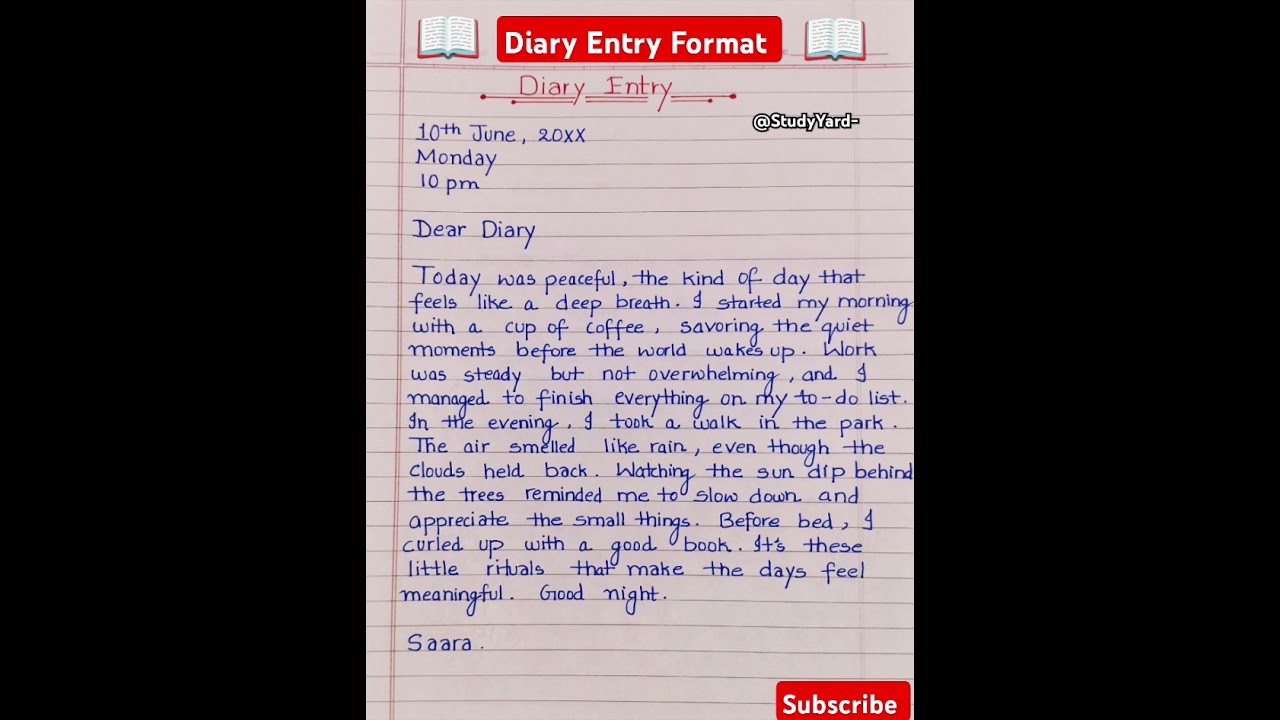 Diary Entry Format
Diary Entry
@StudyYard-
10th June, 20XX
Monday
10 pm
Dear Diary
Today was peaceful, the kind of day that
feels like a deep breath. I started my morning
with a cup of coffee, savoring the quiet
moments before the world wakes up. Work
was steady but not overwhelming, and I
managed to finish everything on my to-do list.
In the evening, I took a walk in the park.
The air smelled like rain, even though the
clouds held back. Watching the sun dip behind
the trees reminded me to slow down and
appreciate the small things. Before bed, I
curled up with a good book. It's these
little rituals that make the days feel
meaningful. Good night.
Saara.
Subscribe